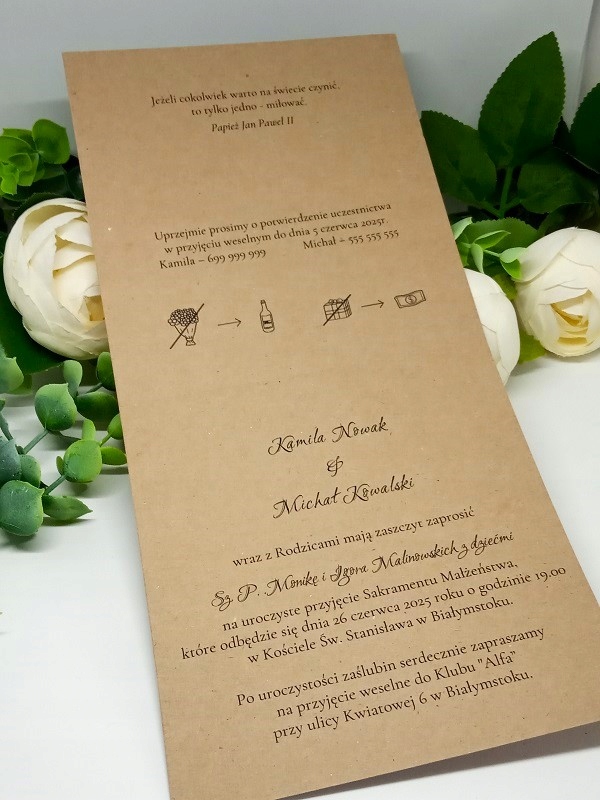 Jeżeli cokolwiek warto na świecie czynić,
to tylko jedno - miłować.
Papież Jan Paweł II
Uprzejmie prosimy o potwierdzenie uczestnictwa
w przyjęciu weselnym do dnia 5 czerwca 2025r.
Kamila – 699 999 999 Michał – 555 555 555
Kamila Nowak
&
Michał Kowalski
wraz z Rodzicami mają zaszczyt zaprosić
Sz. P. Monikę i Igora Malinowskich z dziećmi
na uroczyste przyjęcie Sakramentu Małżeństwa,
które odbędzie się dnia 26 czerwca 2025 roku o godzinie 19.00
w Kościele Św. Stanisława w Białymstoku.
Po uroczystości zaślubin serdecznie zapraszamy
na przyjęcie weselne do Klubu "Alfa"
przy ulicy Kwiatowej 6 w Białymstoku.